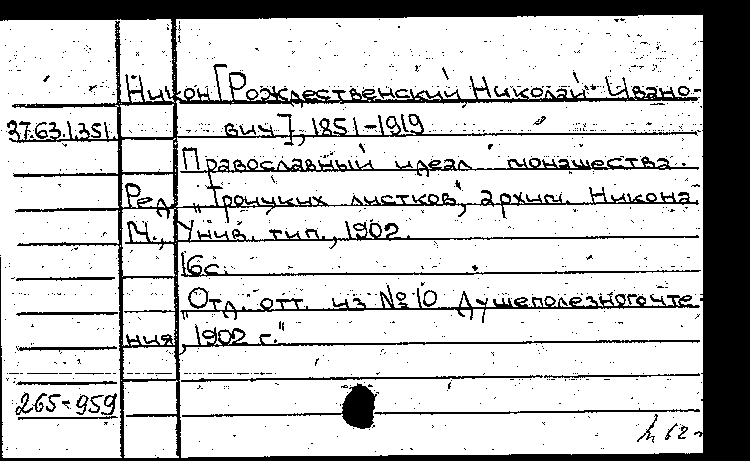 Никон [Рождественский Николай Ивано-
37.63.1.351. вич], 1851-1919
Православный идеал монашества.
Ред. „Троицких листков", архим. Никона
М., Унив. тип., 1902.
16с.
„Отд. отт. из №10 Душеполезного чте-
ния, 1902 г."
265-959